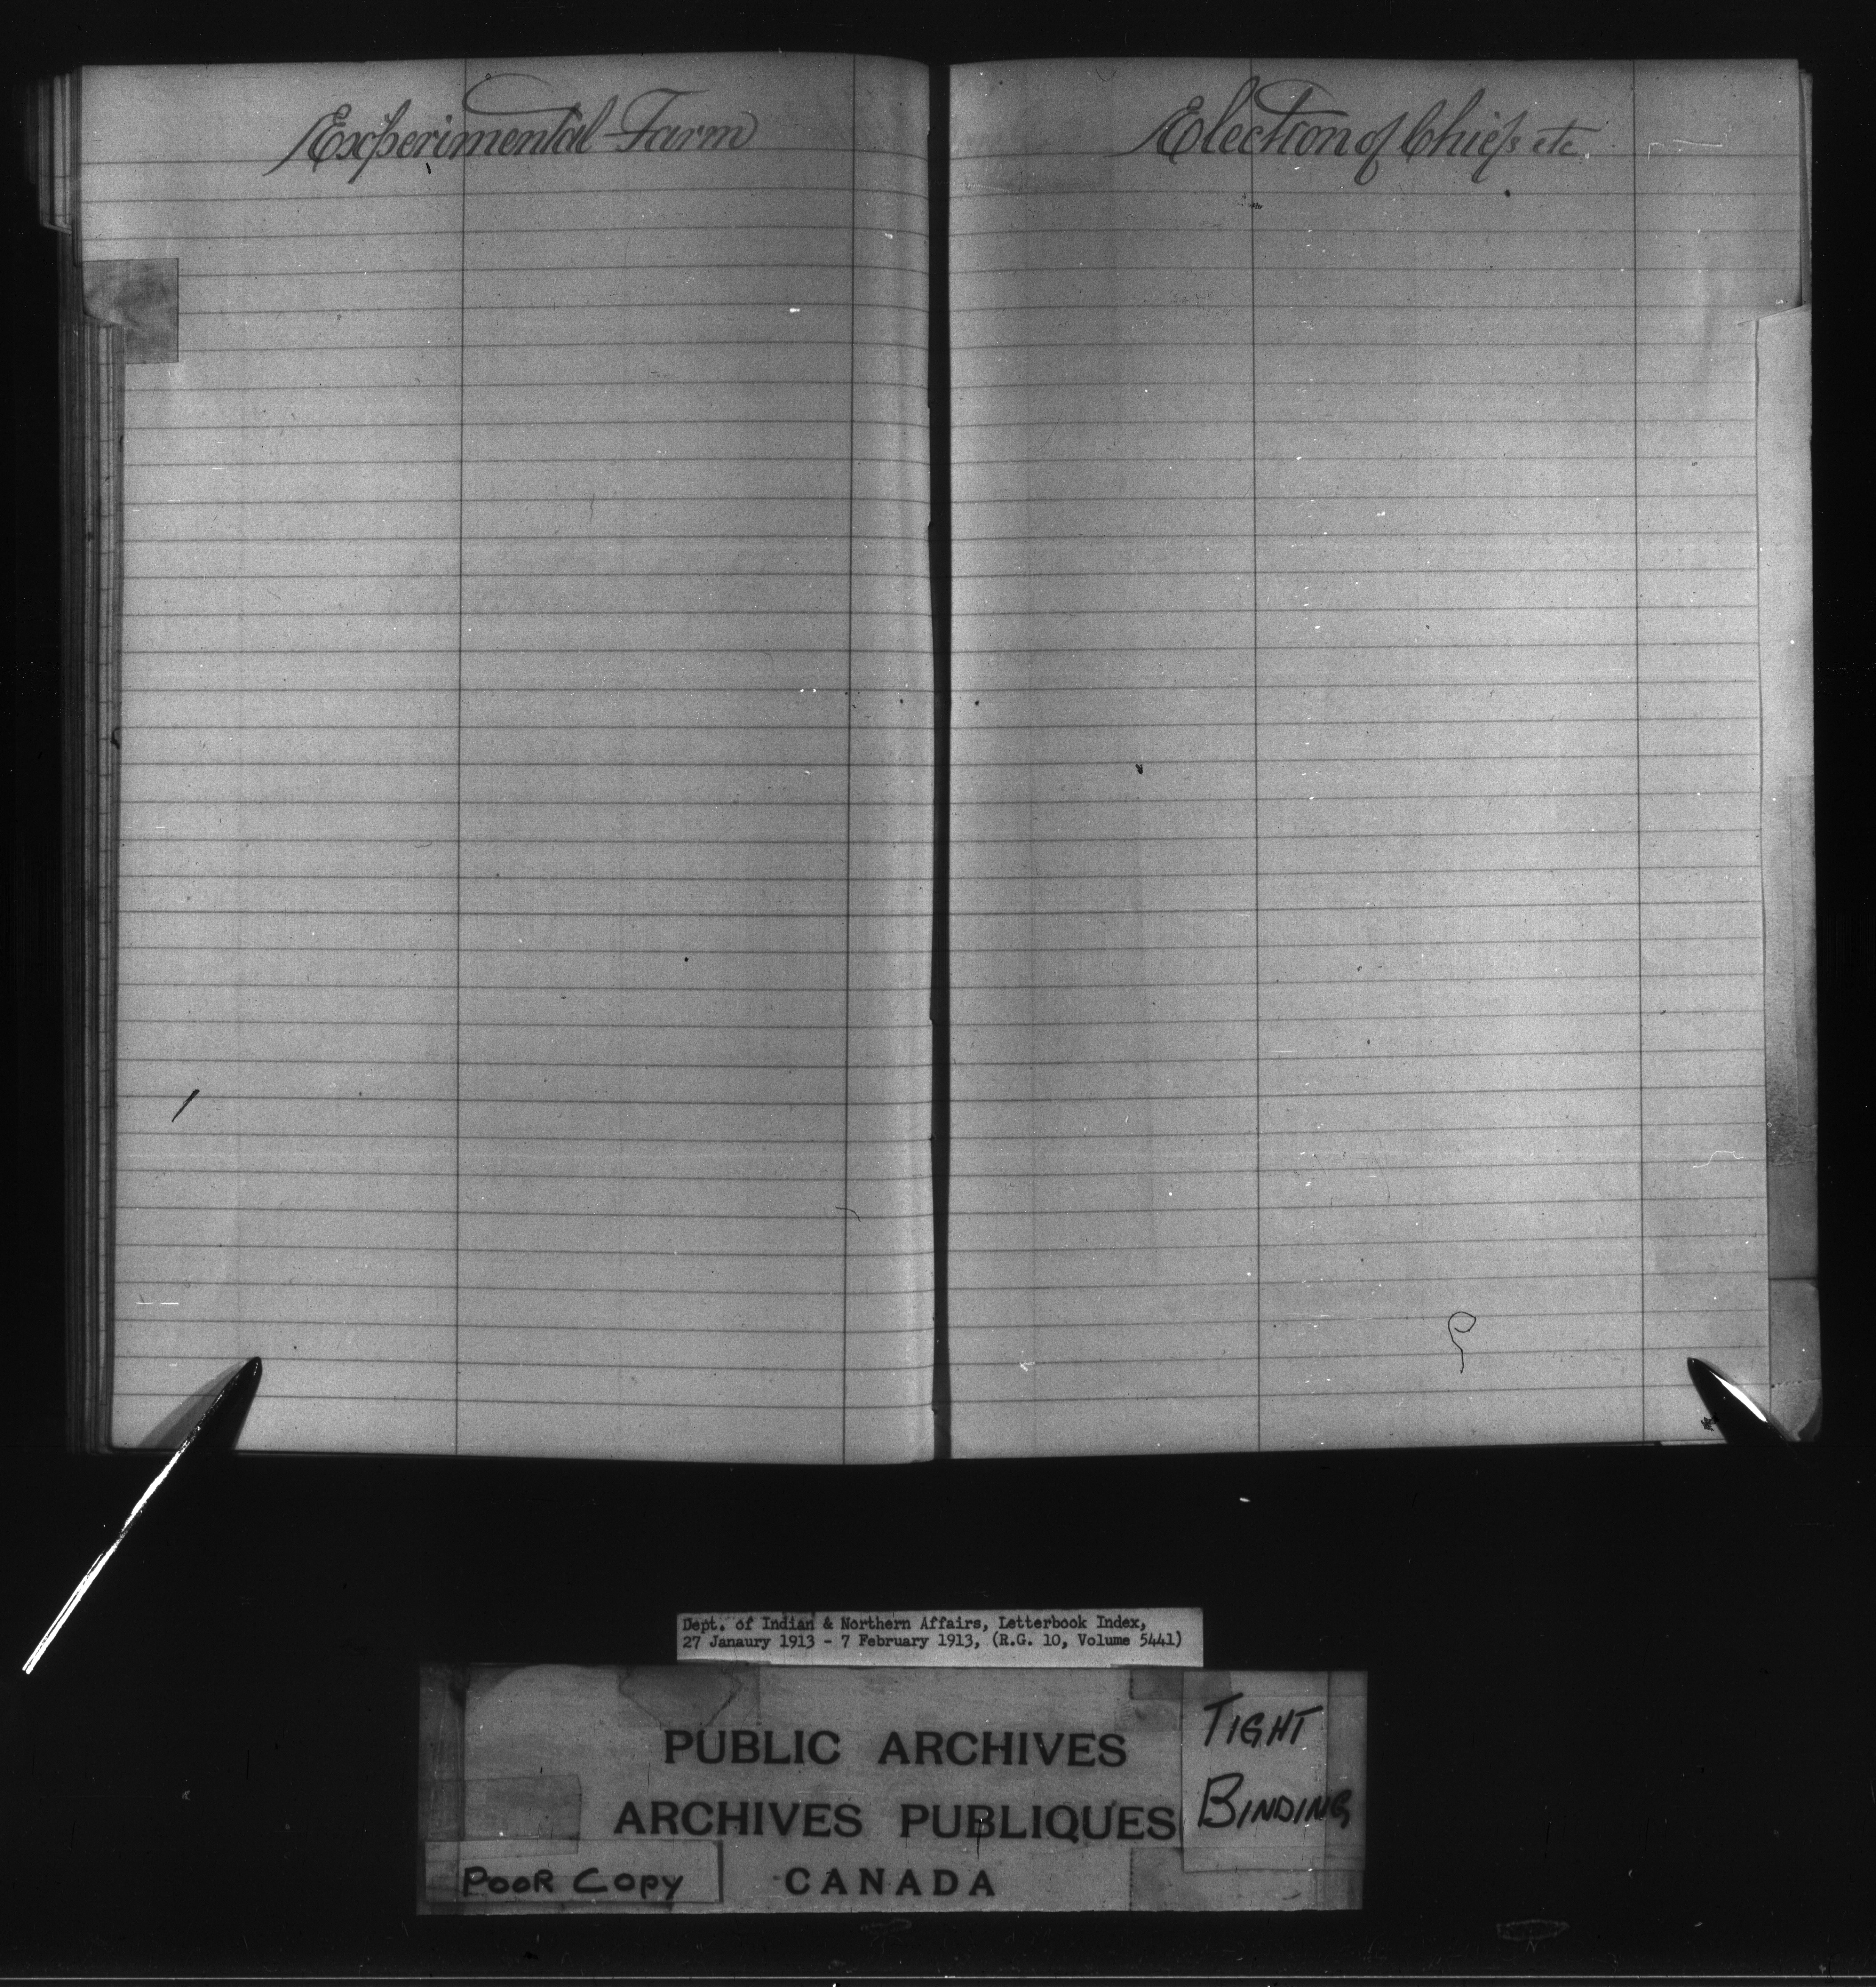 Experimental Farm
Election of Chiefs etc.
Dept. of Indian & Northern Affairs, Letterbook Index,
27 Janaury 1913 - 7 February 1913, (R.G. 10, Volume 5441)
PUBLIC ARCHIVES
ARCHIVES PUBLIQUES
CANADA
TIGHT
BINDING
POOR COPY